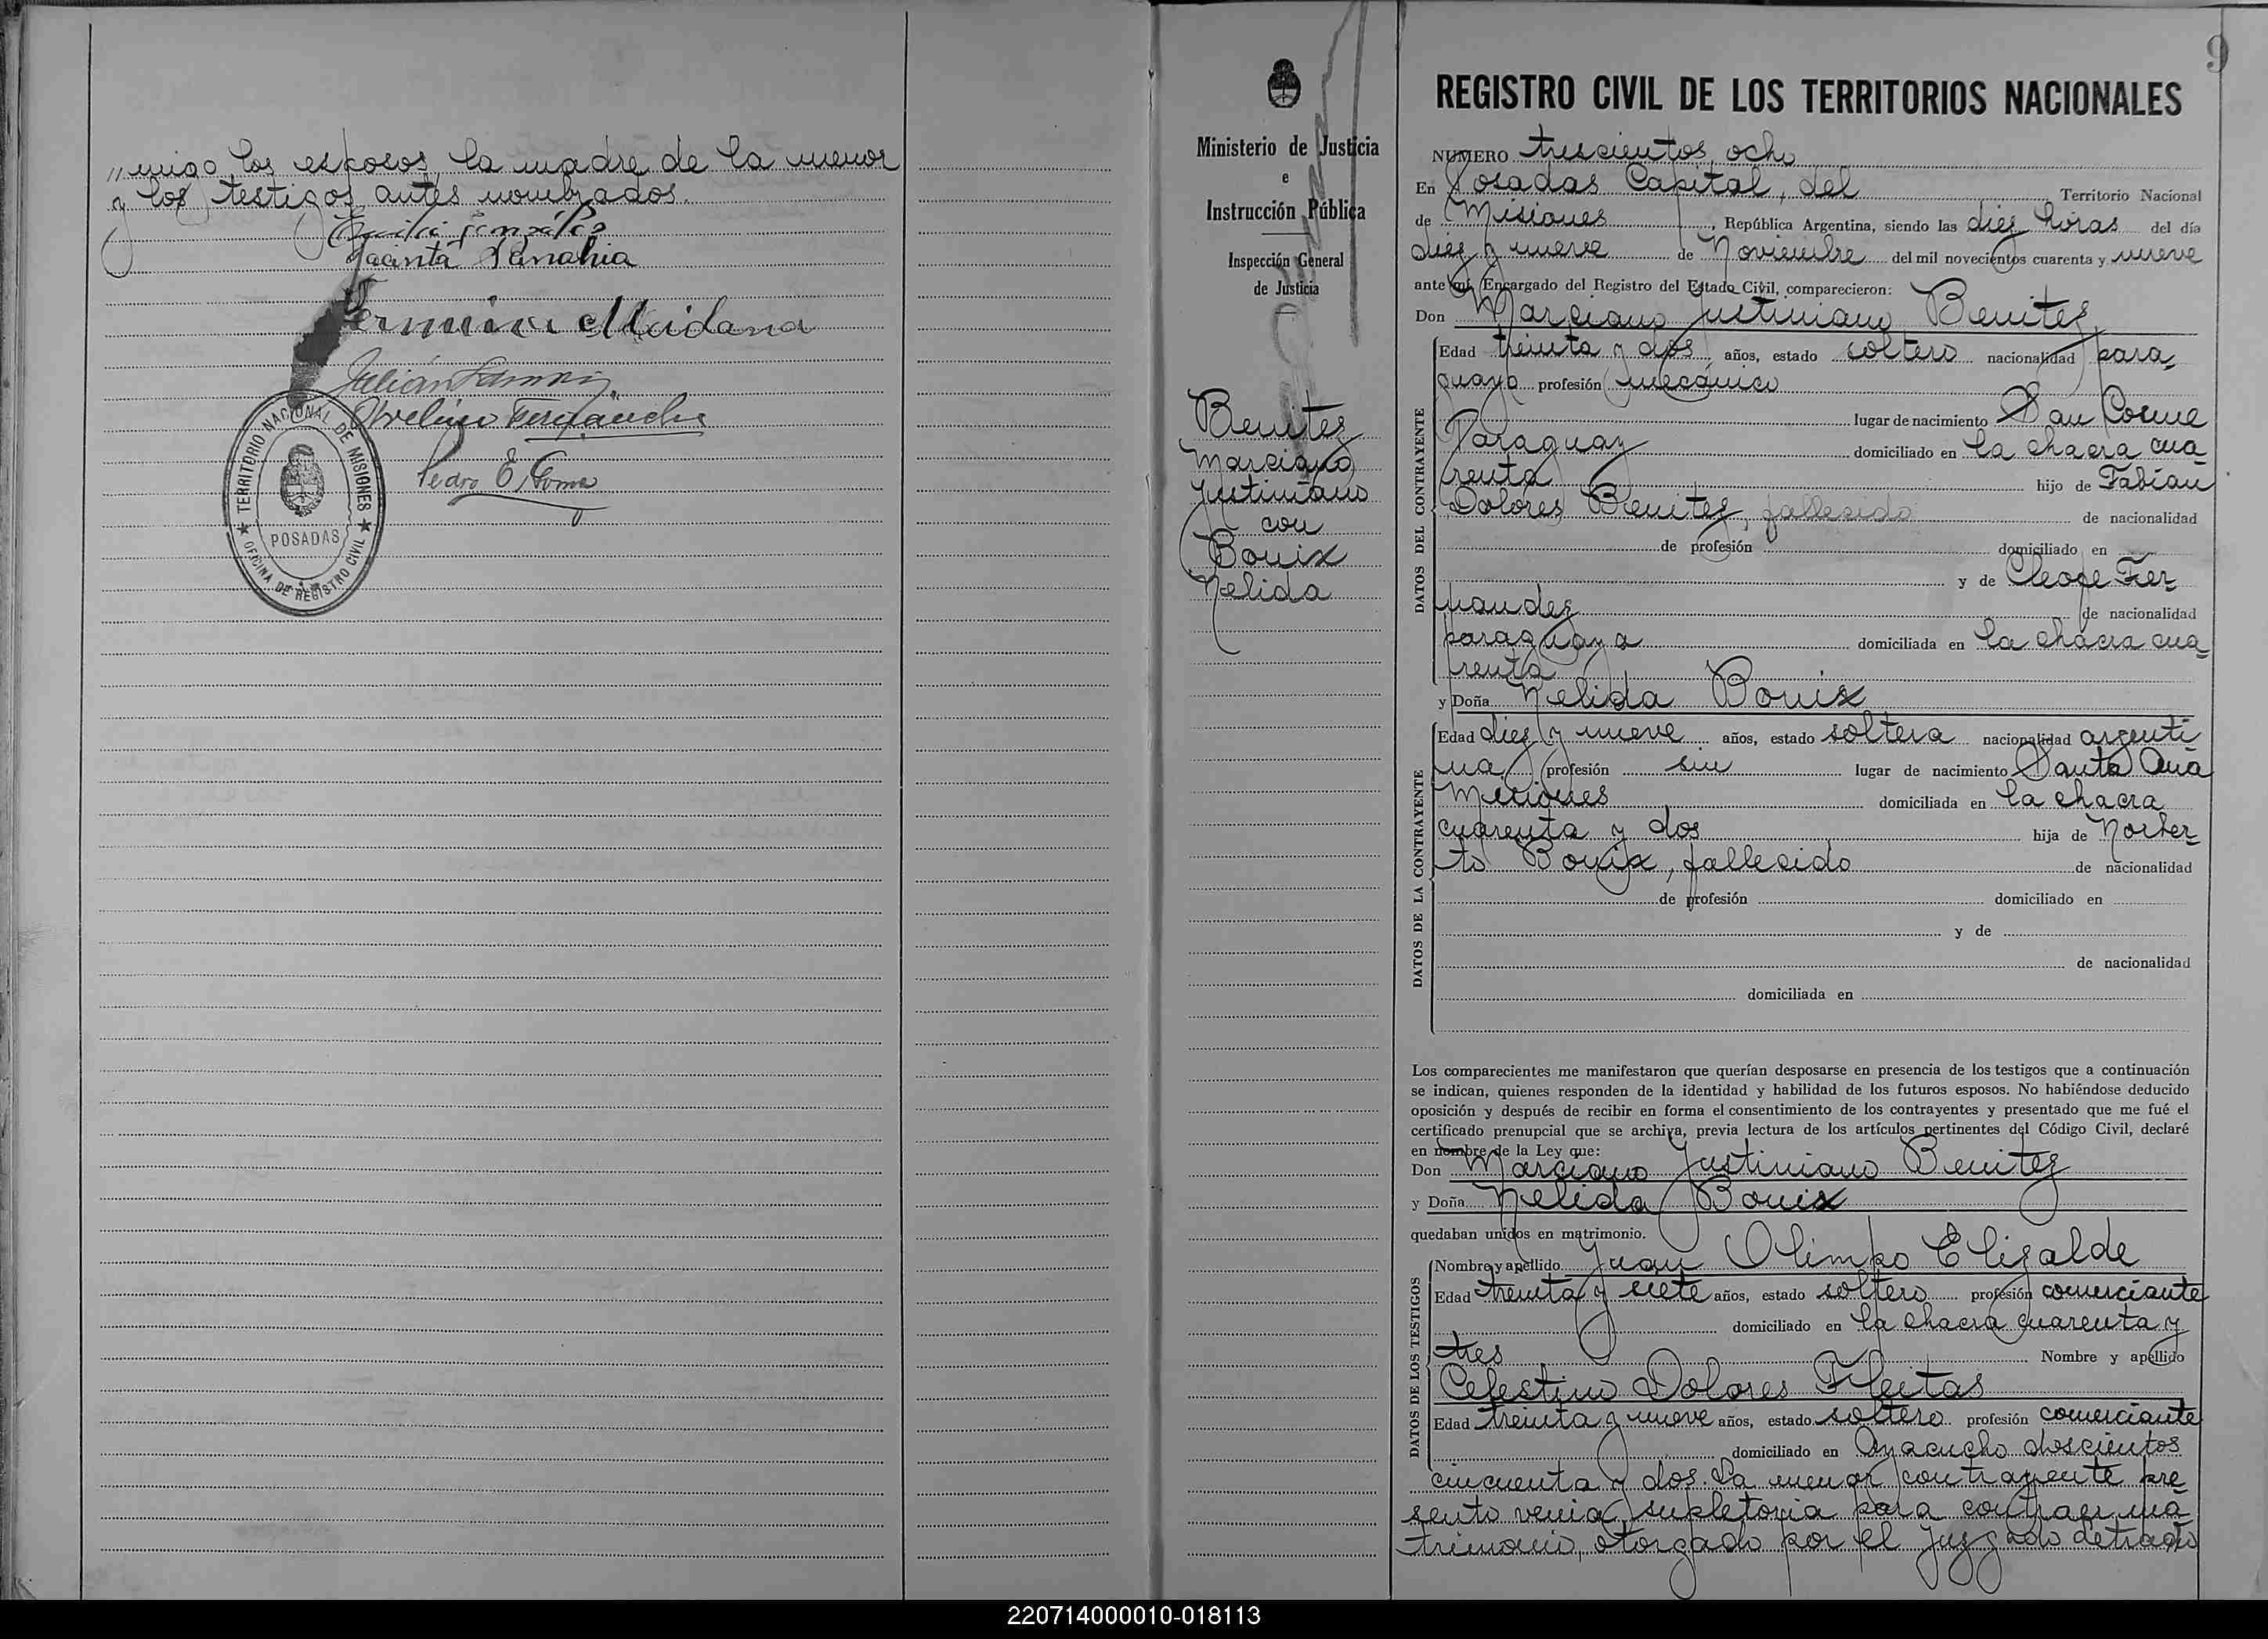 migo los esposos, la madre de la menor
y los testigos antes nombrados.
Jacinta Sanabia
Fermina Maidana
Avelino Fernández
Pedro E. Gomez
TERRITORIO NACIONAL DE MISIONES
POSADAS
OFICINA DE REGISTRO CIVIL
Ministerio de Justicia
e
Instrucción Pública
Inspección General
de Justicia
Benitez
Marciano
Justiniano
con
Bouix
Nelida
9
REGISTRO CIVIL DE LOS TERRITORIOS NACIONALES
NUMERO trescientos ocho
En Posadas Capital, del Territorio Nacional
de Misiones, República Argentina, siendo las diez horas del día
diez y nueve de Noviembre del mil novecientos cuarenta y nueve
ante mí, Encargado del Registro del Estado Civil, comparecieron:
Don Marciano Justiniano Benitez
DATOS DEL CONTRAYENTE
Edad treinta y dos años, estado soltero nacionalidad para-
guayo profesión mecánico
lugar de nacimiento San Cosme
Paraguay domiciliado en la chacra cua-
renta hijo de Fabian
Dolores Benitez, fallecido de nacionalidad
de profesión domiciliado en
y de Cleofe Fer
nandez de nacionalidad
paraguaya domiciliada en la chacra cua-
renta
y Doña Nelida Bouix
DATOS DE LA CONTRAYENTE
Edad diez y nueve años, estado soltera nacionalidad argenti
na profesión sin lugar de nacimiento Santa Ana
Misiones domiciliada en la chacra
cuarenta y dos hija de Norber-
to Bouix, fallecido de nacionalidad
de profesión domiciliado en
y de
de nacionalidad
domiciliada en
Los comparecientes me manifestaron que querían desposarse en presencia de los testigos que a continuación
se indican, quienes responden de la identidad y habilidad de los futuros esposos. No habiéndose deducido
oposición y después de recibir en forma el consentimiento de los contrayentes y presentado que me fué el
certificado prenupcial que se archiva, previa lectura de los artículos pertinentes del Código Civil, declaré
en nombre de la Ley que:
Don Marciano Justiniano Benitez
y Doña Nelida Bouix
quedaban unidos en matrimonio.
DATOS DE LOS TESTIGOS
Nombre y apellido Juan Olimpo Elizalde
Edad treinta y siete años, estado soltero profesión comerciante
domiciliado en la chacra cuarenta y
tres Nombre y apellido
Celestino Dolores Fleitas
Edad treinta y nueve años, estado soltero profesión comerciante
domiciliado en Ayacucho doscientos
cincuenta y dos. La menor contrayente pre
sento venia supletoria para contraer ma
trimonio, otorgado por el Juzgado Letrado
220714000010-018113